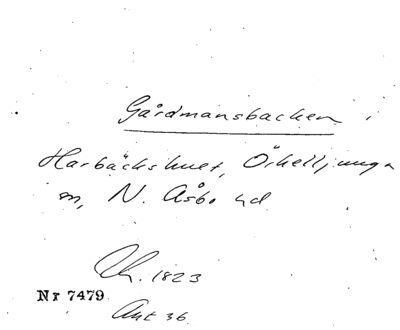 Gårdmansbacken i
Harbäckshult, Örkelljunga
sn, N. Åsbo hd
Ch. 1823
Nr 7479
Ant 36